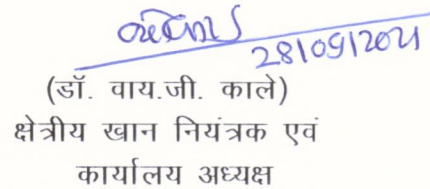 28/09/2021
(डॉ. वाय.जी. काले)
क्षेत्रीय खान नियंत्रक एवं
कार्यालय अध्यक्ष